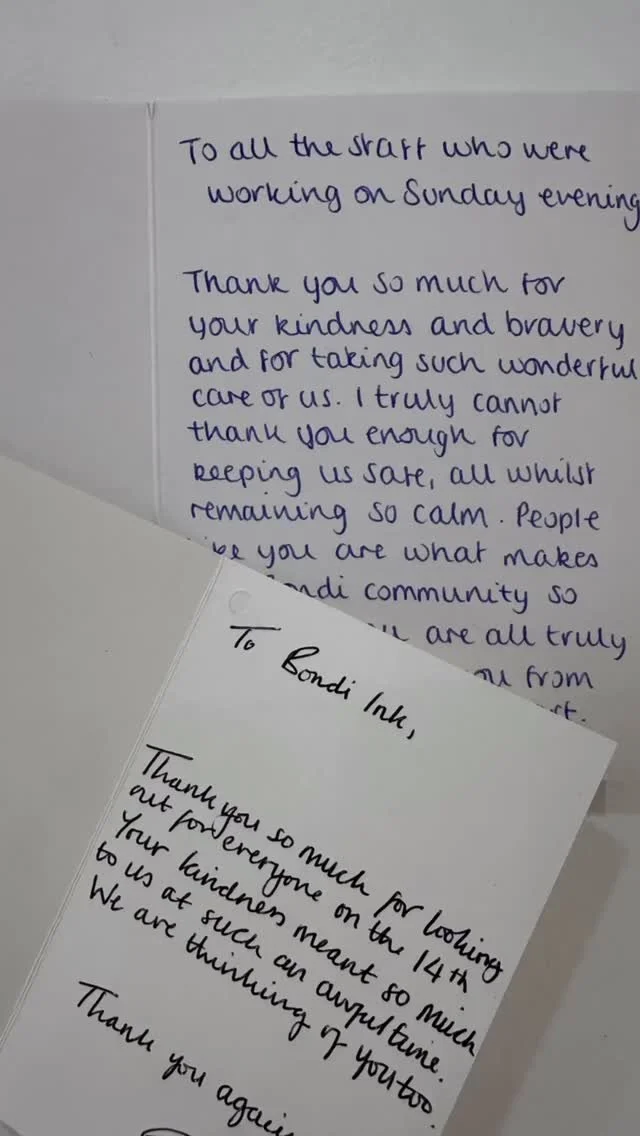 To all the staff who were
working on Sunday evening
Thank you so much for
your kindness and bravery
and for taking such wonderful
care of us. I truly cannot
thank you enough for
keeping us safe, all whilst
remaining so calm. People
you are what makes
community so
are all truly
from
To Bondi Ink,
Thank you so much for looking
out for everyone on the 14th
Your kindness meant so much
to us at such an awful time.
We are thinking of you too.
Thank you again